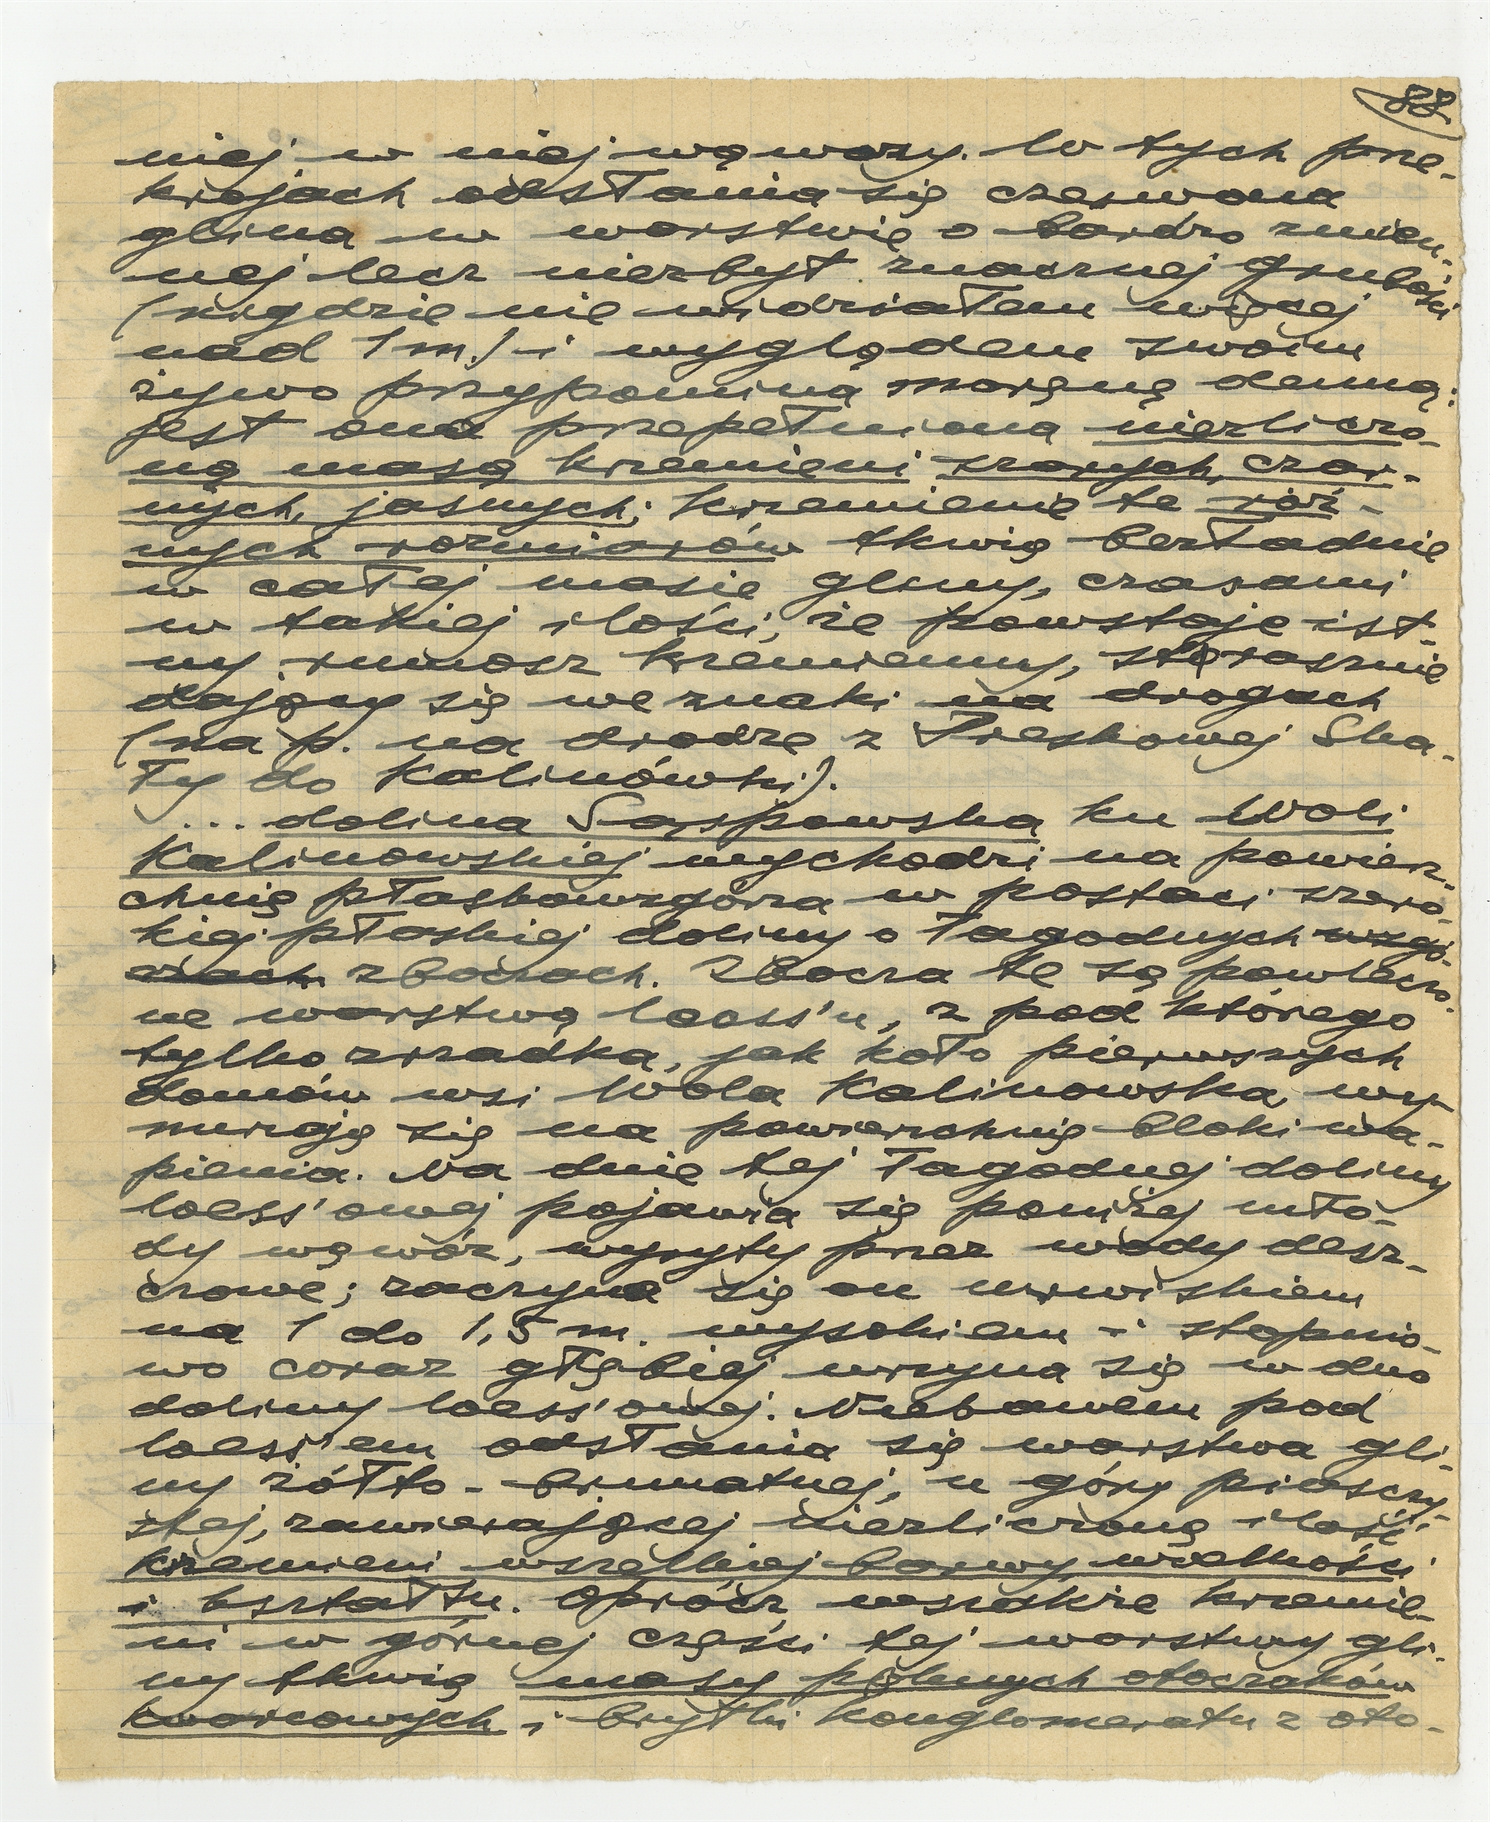 88.
niej w niej wąwozy. W tych prze-
krojach odsłania się czerwona
glina w warstwie o bardzo zmien-
nej lecz niezbyt znacznej grubości
(nigdzie nie widziałem więcej
nad 1 m.) i wyglądem swoim
żywo przypomina morenę denną;
jest ona przepełniona niezliczo-
ną masą krzemieni szarych, czar-
nych, jasnych; krzemienie te róż-
nych rozmiarów tkwią bezładnie
w całej masie gliny, czasami
w takiej ilości, że powstaje ist-
ny rumosz krzemienny, strasznie
dający się we znaki na drogach
(na p. na drodze z Pieskowej Ska-
ły do Kalinówki).
... dolina Sąspowska ku Woli
Kalinowskiej wychodzi na powierz-
chnię płaskowzgórza w postaci szero-
kiej płaskiej doliny o łagodnych wzgó-
rzach zboczach. Zbocza te są powleczo-
ne warstwą loess'u, z pod którego
tylko zrzadka, jak koło pierwszych
domów wsi Wola Kalinowska, wy-
nurzają się na powierzchnię bloki wa-
pienia. Na dnie tej łagodnej doliny
loess'owej pojawia się poniżej mło-
dy wąwóz, wyryty przez wody desz-
czowe; zaczyna się on urwiskiem
na 1 do 1,5 m. wysokiem i stopnio-
wo coraz głębiej wrzyna się w dno
doliny loess'owej. Niebawem pod
loess'em odsłania się warstwa gli-
ny żółto-brunatnej, u góry piaszczy-
stej, zawierającej niezliczoną ilość
krzemieni wszelkiej barwy, wielkości
i kształtu. Oprócz wszakże krzemie-
ni w górnej części tej warstwy gli-
ny tkwią masy pełnych otoczaków
kwarcowych i bryłki konglomeratu z oto-